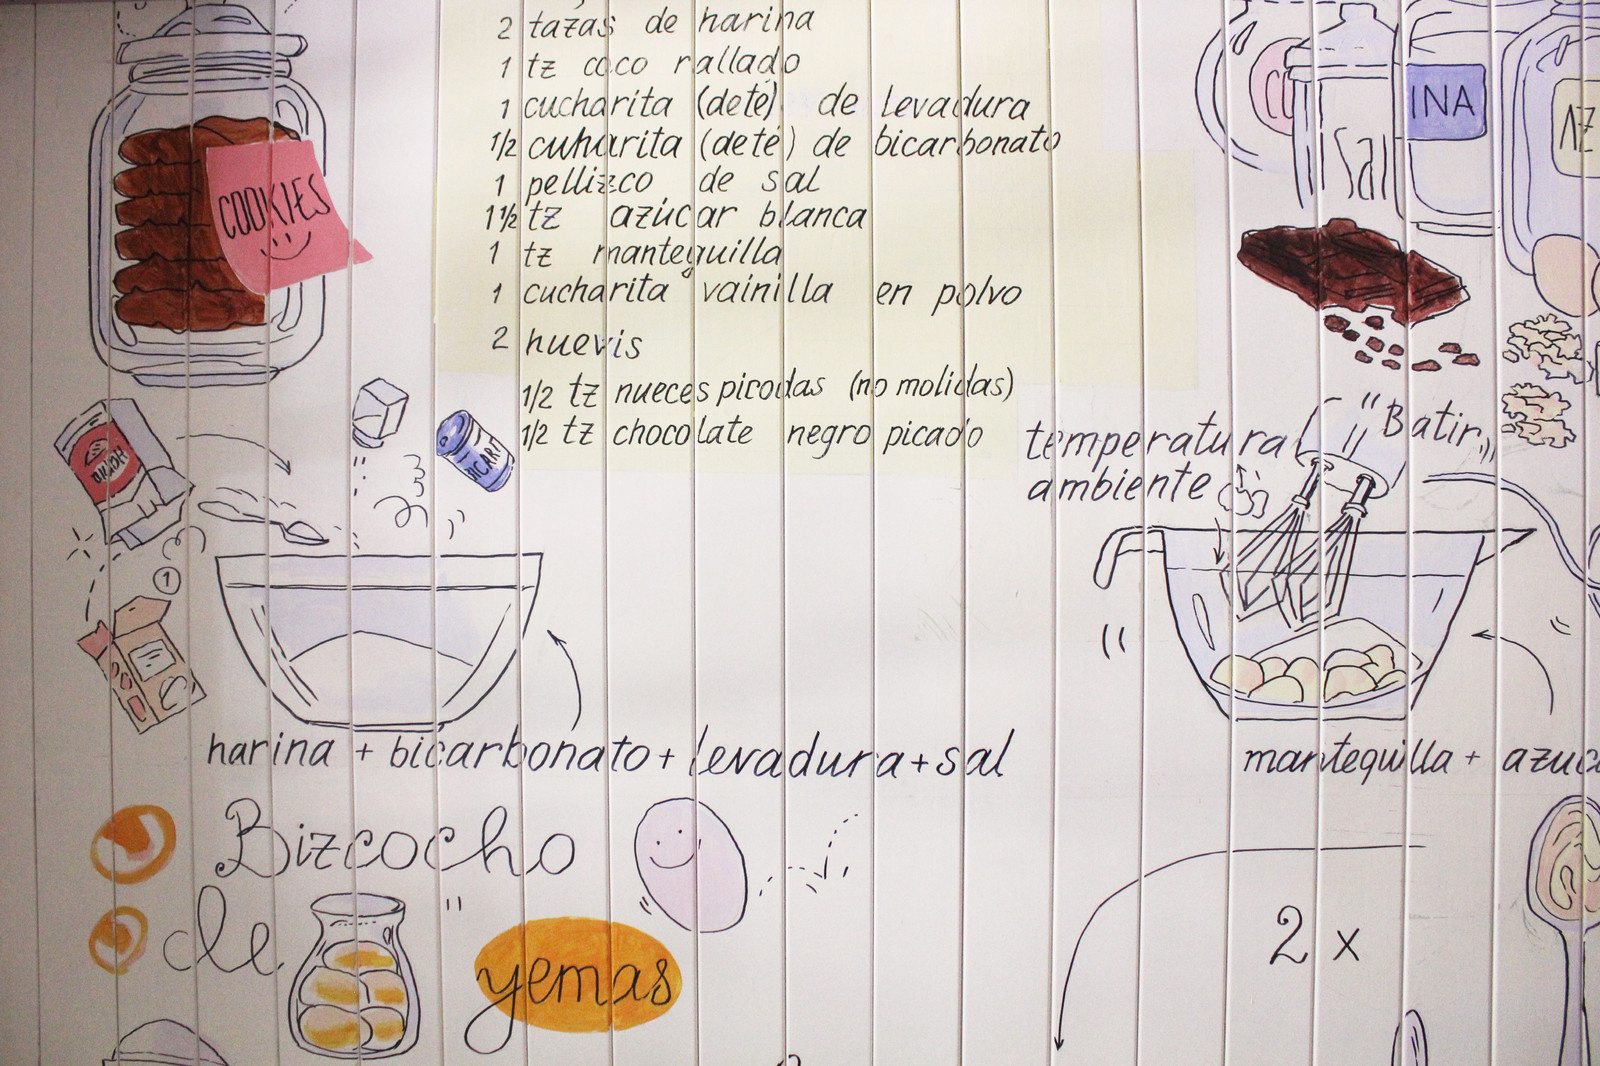 2 tazas de harina
1 tz coco rallado
1 cucharita (deté) de levadura
1/2 cuharita (deté) de bicarbonato
1 pellizco de sal
1 1/2 tz azúcar blanca
1 tz mantequilla
1 cucharita vainilla en polvo
2 huevis
1/2 tz nueces picodas (no molidas)
1/2 tz chocolate negro picado
COOKIES
Sal
INA
AZ
temperatura
ambiente
"Batir"
BICAR
1
harina + bicarbonato + levadura + sal
mantequilla + azuc
Bizcocho
de
yemas
2 x